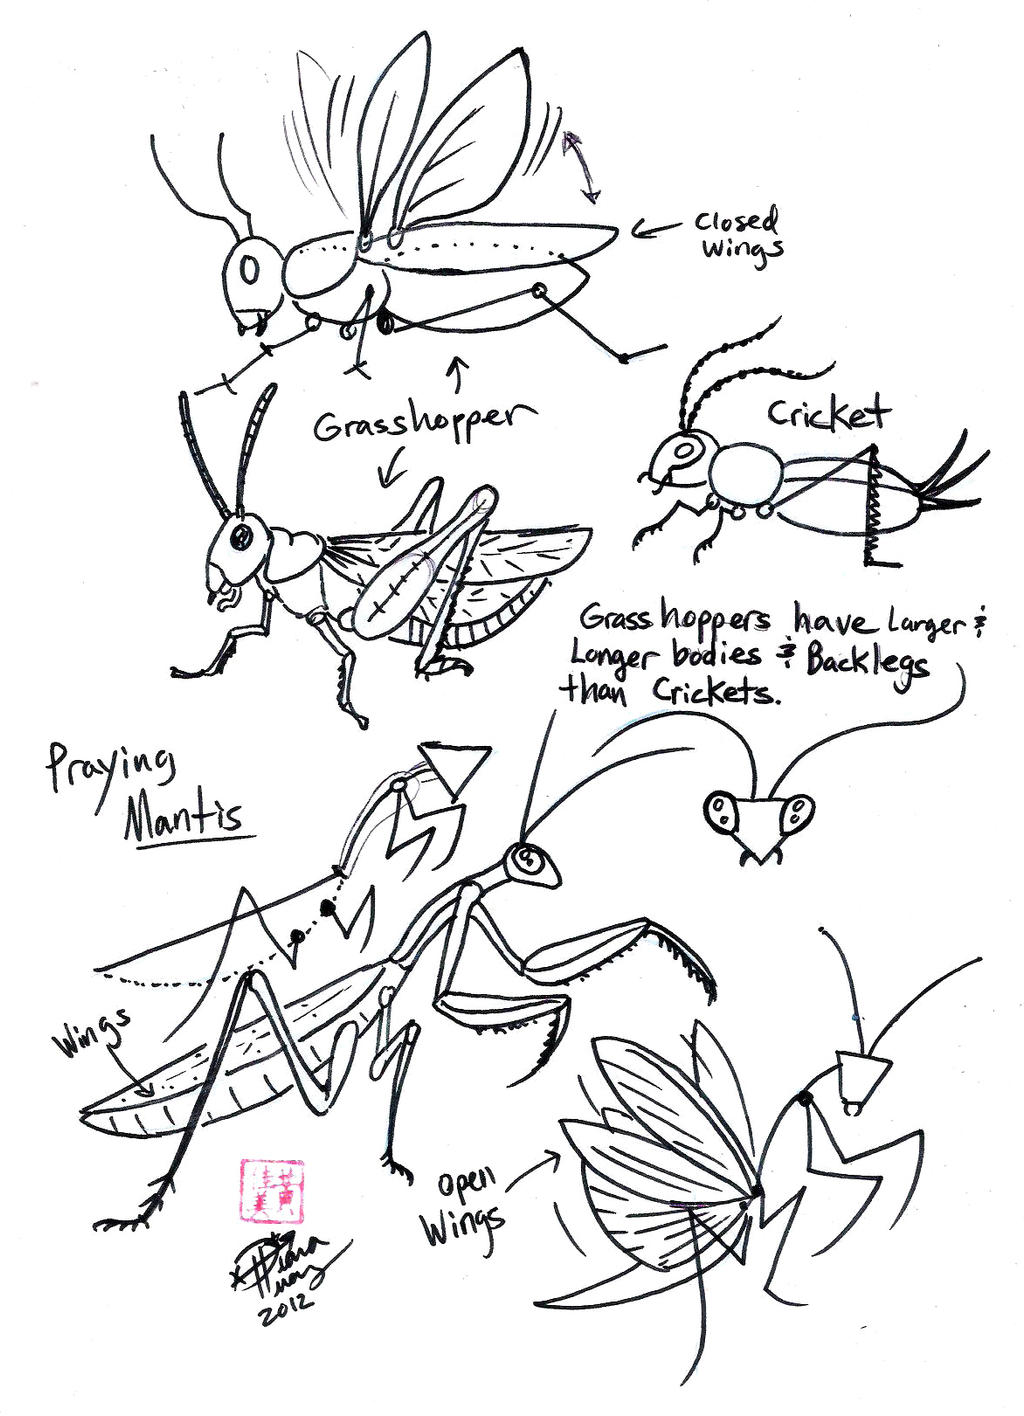 Closed
Wings
Grasshopper
Cricket
Grasshoppers have Larger &
Longer bodies & Backlegs
than Crickets.
Praying
Mantis
Wings
Open
Wings
2012